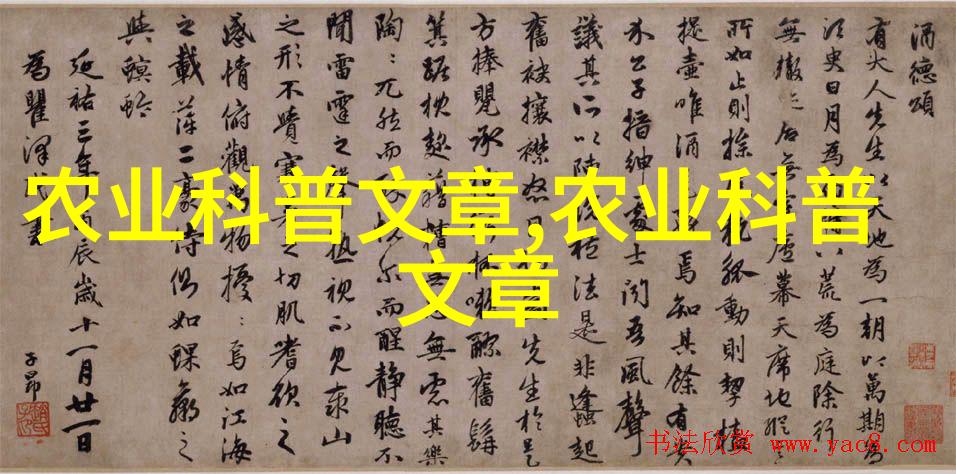 酒德頌
有大人先生以天地為一朝以萬期為
須臾日月為八荒為庭除行
無轍迹居無室廬幕天席地縱
所如止則操執觚動則挈榼
提壺唯酒焉知其餘有貴
公子搢紳處士聞吾風聲
議其所以法是非逢起
奮袂攘襟怒目先生於是
方捧甖承糟醪奮髯
箕踞枕麴藉糟無思其樂
陶：兀然而醉爾而醒靜聽不
聞雷霆之聲熟視不見泰山
之形不覺寒暑之切肌嗜欲之
感情俯觀萬物擾：焉如江海
之載萍二豪侍側如蜾蠃之
與螟蛉
延祐三年丙辰歲十一月廿一日
為瞿澤書
子昂
农业科普文章,农业科普
文章
书法欣赏 www.yac8.com